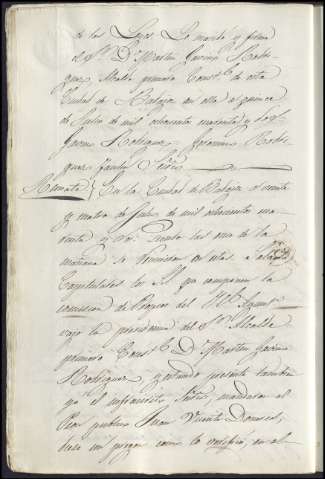 de las Leyes. Lo mandó y firma
el Sr. Dn. Martin Jacinto Rodri-
guez Alcalde primero Constl. de esta
Ciudad de Badajoz en ella a quince
de Julio de mil ochocientos cuarenta y dos =
Jacinto Rodriguez = Jeronimo Rodri-
guez
Remate } En la Ciudad de Badajoz a veinte
y cuatro de Julio de mil ochocientos cua-
renta y dos: siendo las once de la
mañana se reunieron en las Salas
Capitulares los SS. que componen la
comision de Propios del Ayunto
bajo la presidencia del Sr. Alcalde
primero Constl. Dn. Martin Jacinto
Rodriguez, y estando presente tambien
yo el infrascrito Secreto, mandaron al
Peon publico Juan Vicente
diese un pregon como lo verificó, en el